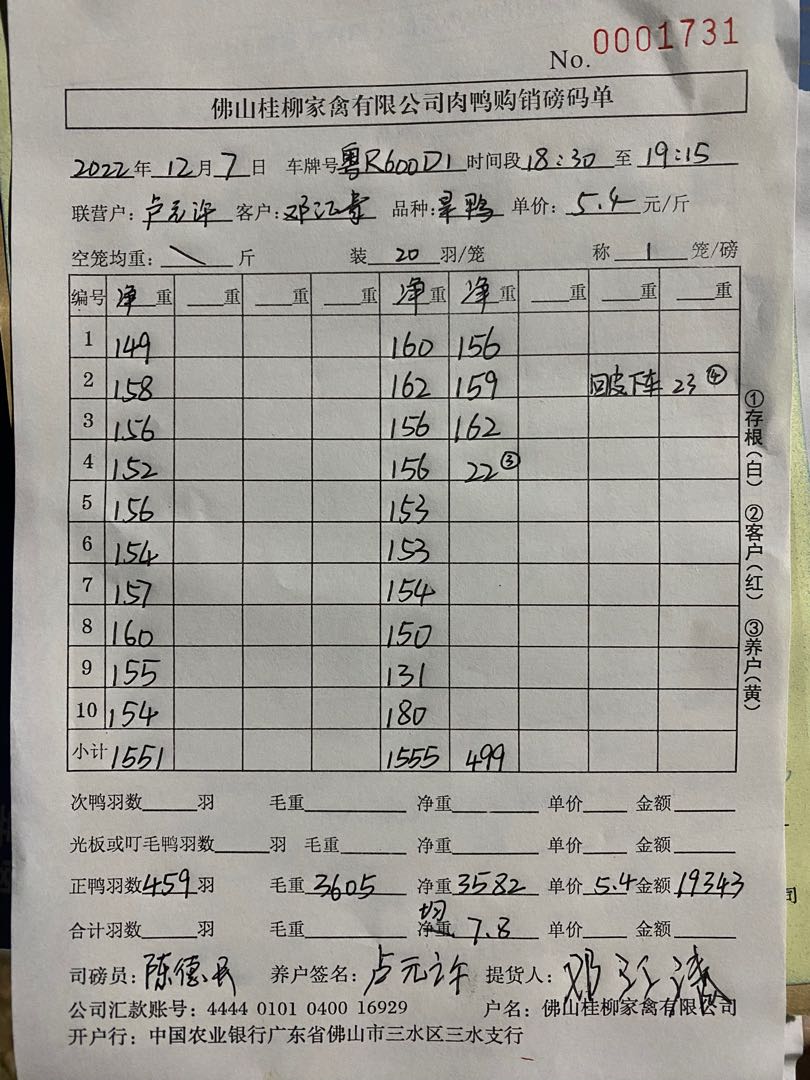 No. 0001731
佛山桂柳家禽有限公司肉鸭购销磅码单
2022年 12月 7日 车牌号粤R600D1 时间段18:30 至 19:15
联营户: 卢元许 客户: 邓江 品种: 鸭 单价: 5.4 元/斤
空笼均重: \ 斤 装 20 羽/笼 称 1 笼/磅
编号 净重 重 重 重 净重 净重 重 重 重
1 149 160 156
2 158 162 159 回皮下车 23 ④
3 156 156 162
4 152 156 22 ③
5 156 153
6 154 153
7 157 154
8 160 150
9 155 131
10 154 180
小计 1551 1555 499
次鸭羽数 羽 毛重 净重 单价 金额
光板或叮毛鸭羽数 羽 毛重 净重 单价 金额
正鸭羽数459羽 毛重3605 净重3582 单价5.4金额19343
合计羽数 羽 毛重 净重 均 7.8 单价 金额
司磅员: 陈德民 养户签名: 卢元许 提货人: 邓江
公司汇款账号: 4444 0101 0400 16929 户名: 佛山桂柳家禽有限公司
开户行: 中国农业银行广东省佛山市三水区三水支行
①存根(白) ②客户(红) ③养户(黄)
司